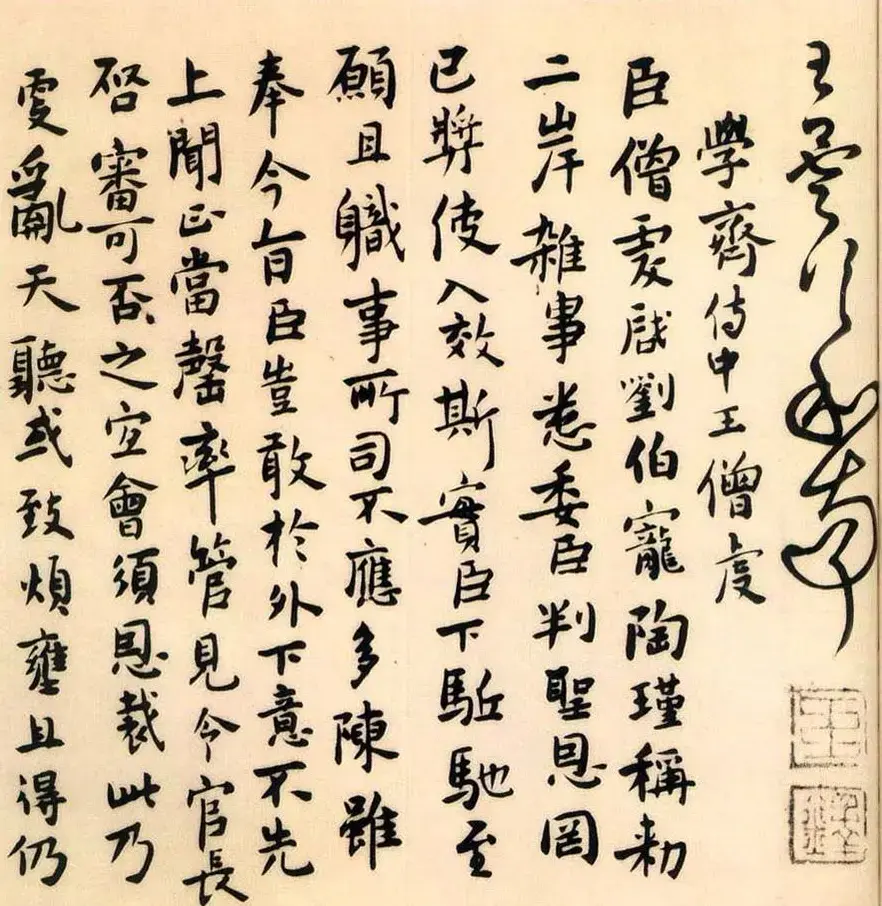 和南
學齊侍中王僧虔
臣僧虔啟劉伯寵陶瑾稱勅
二岸雜事悉委臣判聖恩罔
已獎使入效斯實臣下駈馳至
願且職事所司不應多陳雖
奉今旨臣豈敢於外下意不先
上聞正當罄率管見今官長
啓審可否之宜會須恩裁此乃
更亂天聽或致煩壅且得仍